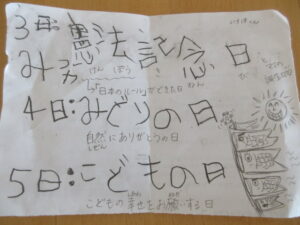 3日:憲法記念日
みっか けん ぽう き ねん び
日本のルールができた日
4日:みどりの日
自然にありがとうの日
しぜん
5日:こどもの日
こどもの幸せをお願いする日